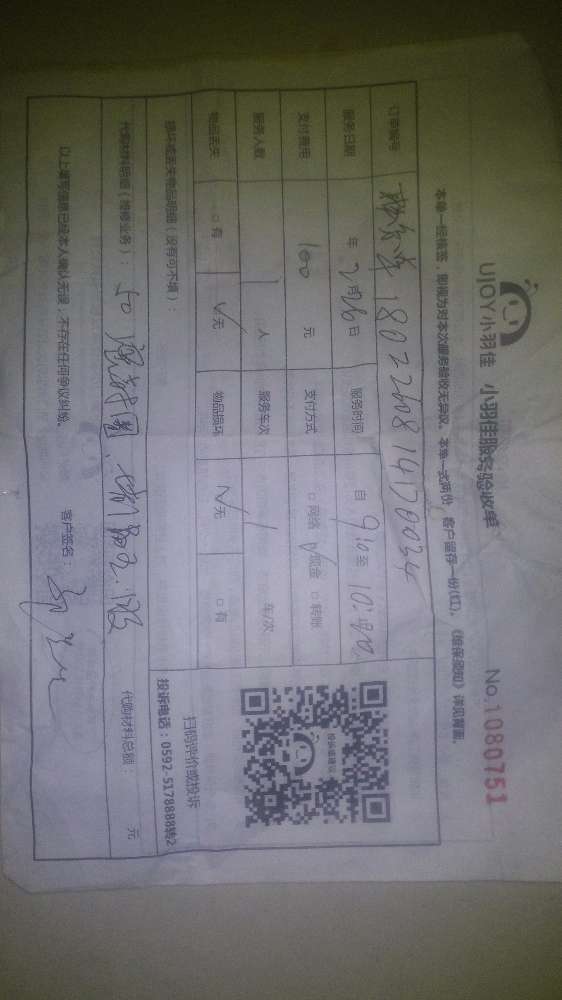 UJOY小羽佳 小羽佳服务验收单
No.1080751
本单一经核签，即视为对本次服务验收无异议。本单一式两份，客户留存一份(红)，《维保须知》详见背面。
订单编号 1802260814170034
服务日期 年 2月26日 服务时间 自 9:10至
支付费用 100 元 支付方式 □网络 √现金 □转账
服务人数 1 人 服务车次 1 车/次
物品丢失 □有 √无 物品损坏 √无 □有
损坏或丢失物品明细（没有可不填）：
扫码评价或投诉
投诉电话：0592-5178888转2
代购材料明细（维修业务）：
代购材料总额： 元
以上填写信息已经本人确认无误，不存在任何争议纠纷。 客户签名：